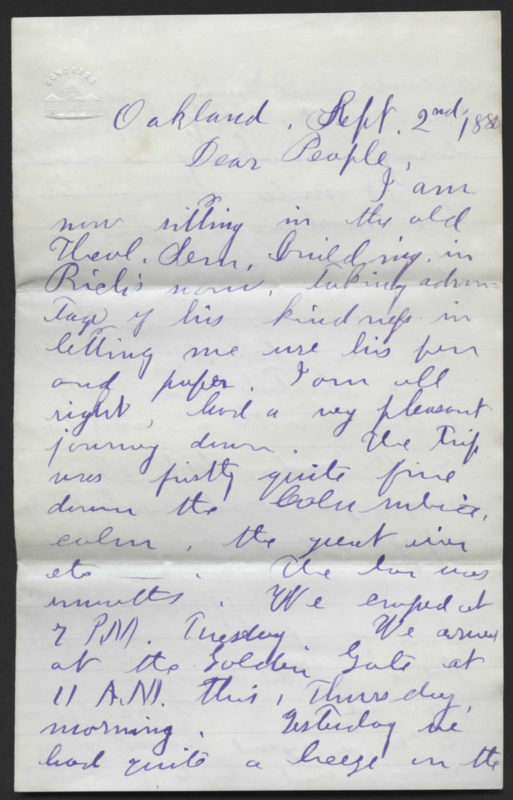 CONGRESS
Oakland, Sept. 2nd, 188
Dear People,
I am
now sitting in the old
Theol. Sem. building, in
Rich's room, taking advan=
tage of his kindness in
letting me use his pen
and paper. I am all
right, had a very pleasant
journey down. The trip
was firstly quite fine
down the Columbia,
calm, the great river
etc —. The bar was
smooth. We crossed at
7 P.M. Tuesday We arrived
at the Golden Gate at
11 A.M. this, Thursday,
morning. Yesterday we
had quite a breeze on the